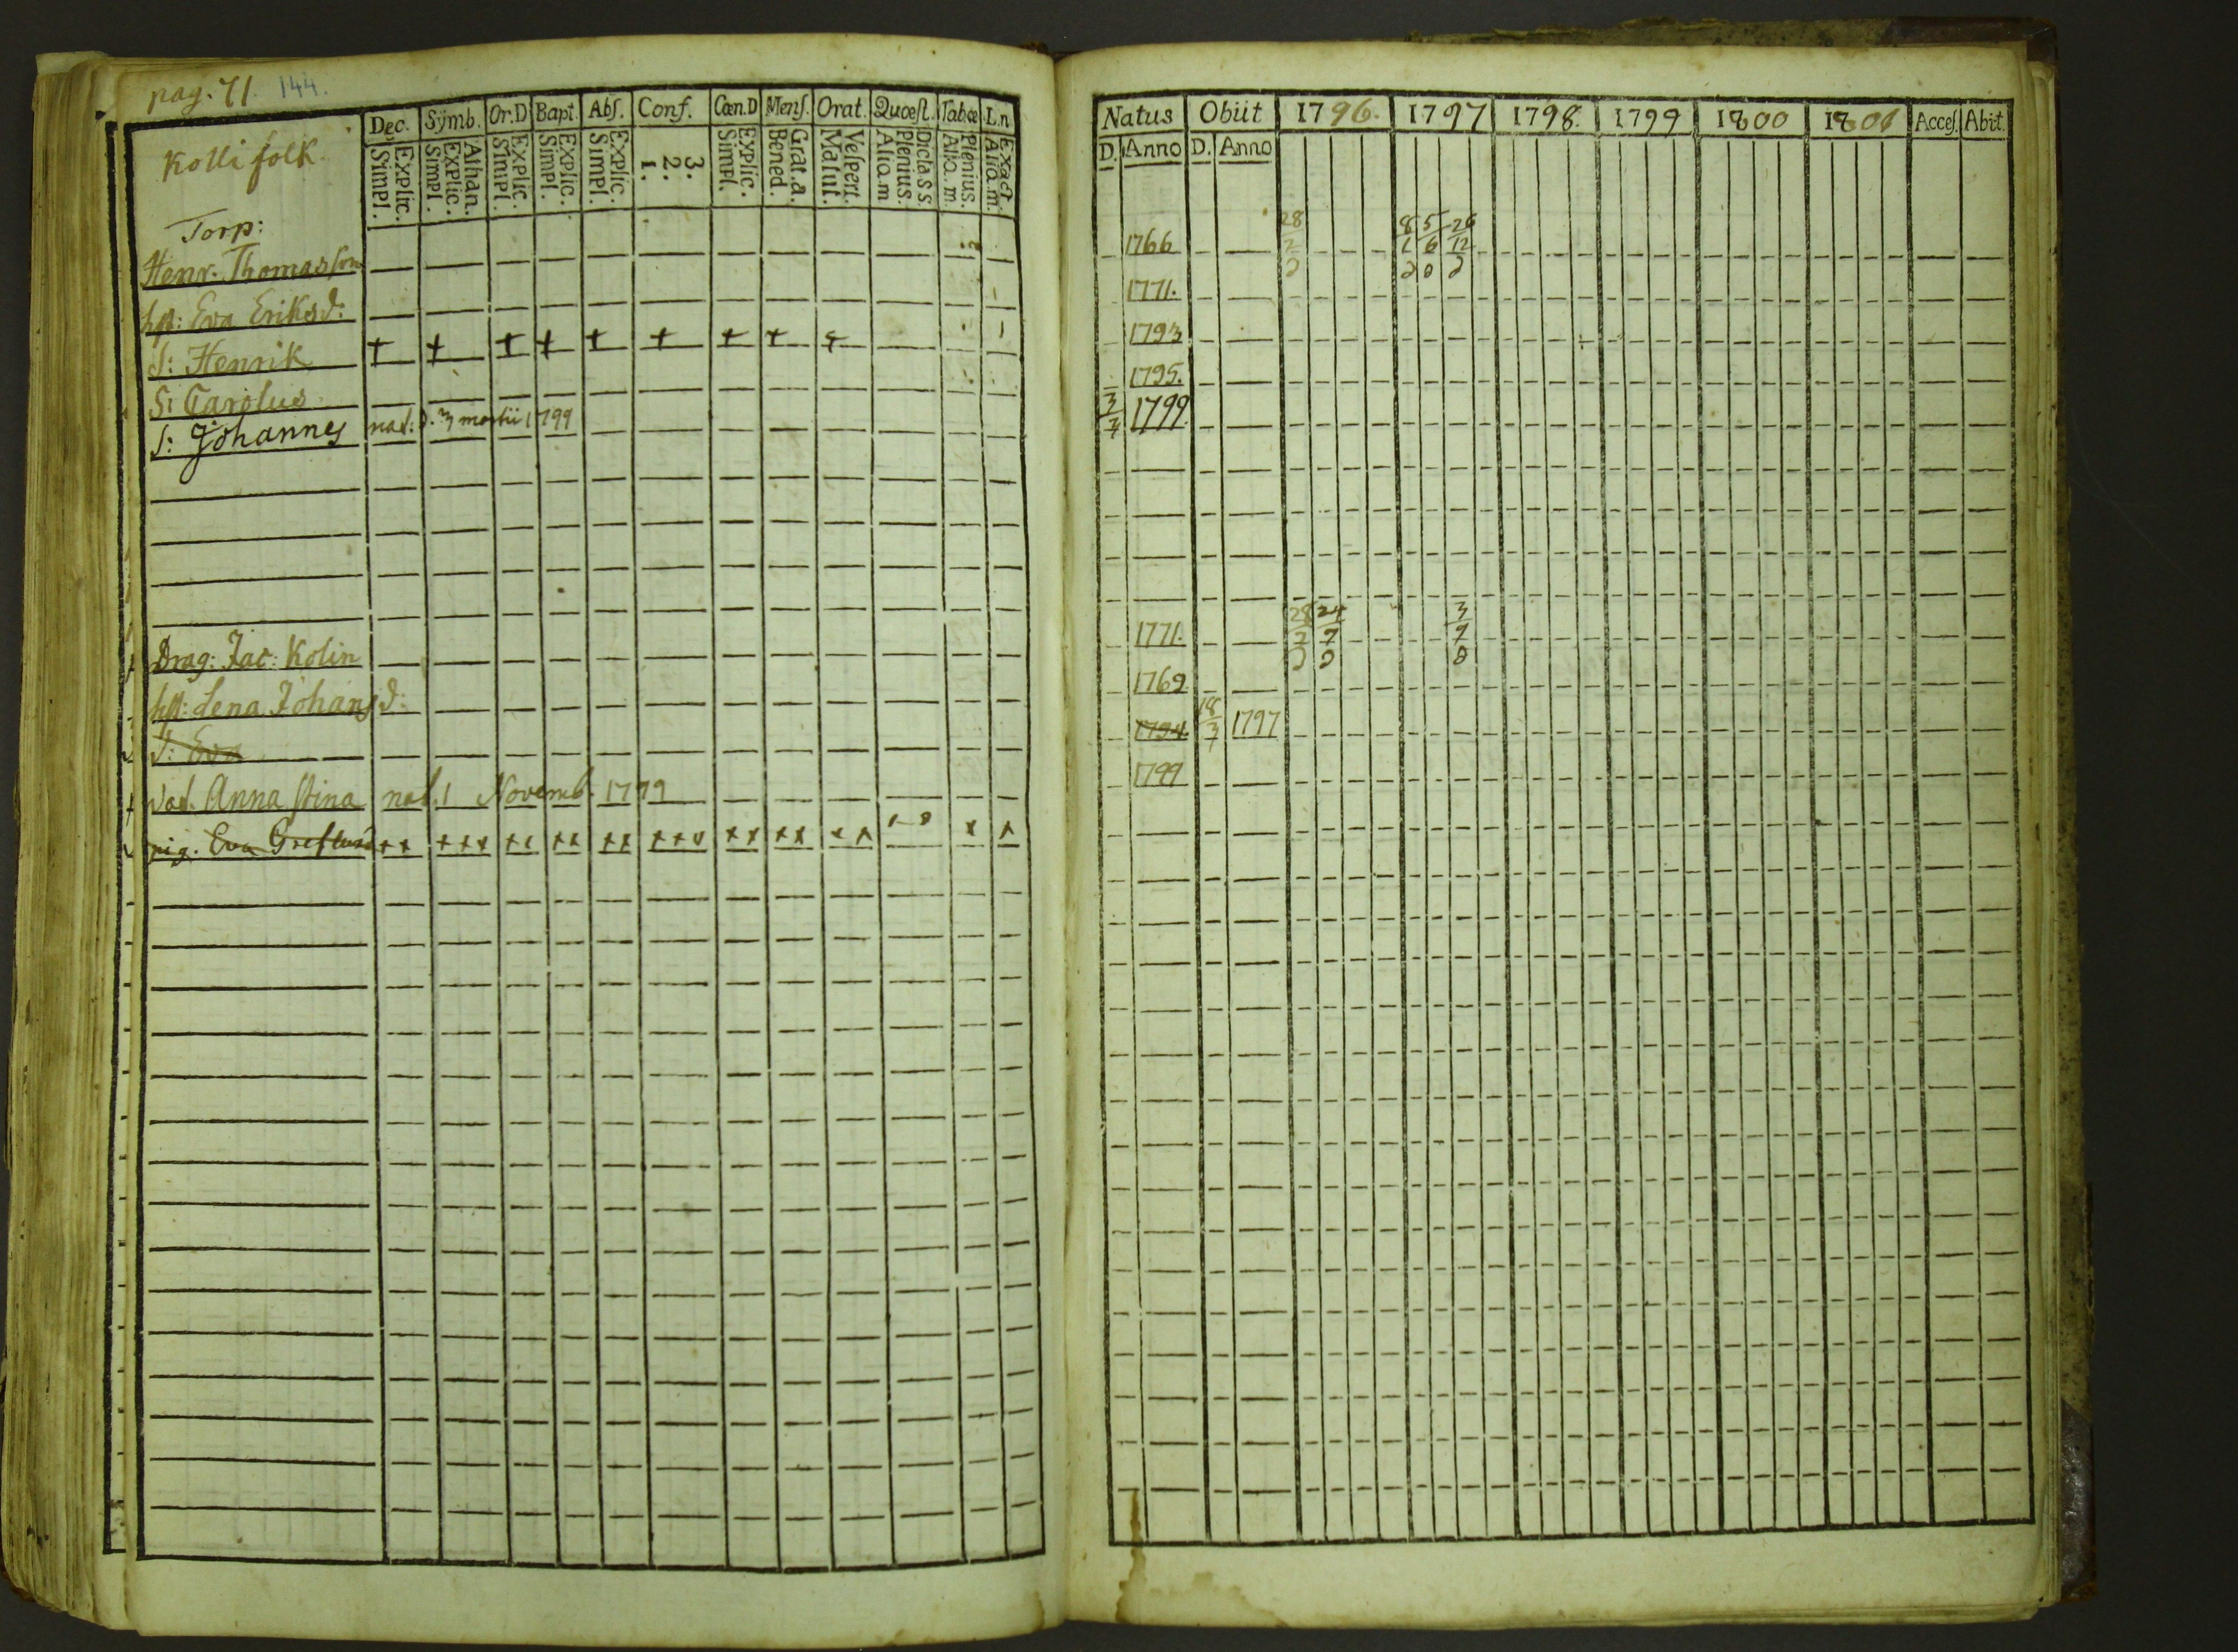 pag. 71. 144.
Kolli folk.
Dec. Symb. Or.D Bapt. Abs. Conf. Cœn.D Mens. Orat. Quœst. Tabœ L.n
Explic. Simpl. Athan. Explic. Simpl. Explic. Simpl. Explic. Simpl. Explic. Simpl. 3. 2. 1. Explic. Simpl. Grat.a. Bened. Vespert. Matut. Dictass. Plenius. Aliq.m Plenius. Aliq.m. Exact. Aliq.m.
Torp:
Henr. Thomasson
hst: Eva Eriksd:
S: Henrik + + + + + + + + +
S: Carolus
S: Johannes nat: d. 3 martii 1799
Drag: Jac: Kolin
hst: Lena Johansd:
d: Eva
dot. Anna Stina nat. 1 Novemb. 1799
pig. Eva
Natus Obiit 1796. 1797 1798. 1799 1800 1801 Acces. Abit.
D. Anno D. Anno
1766 28/2 8/1 5/6 26/12
1771.
1793
1795.
3/3 1799
1771. 28/2 24/7 3/7
1769
1794 18/3 1797
1799